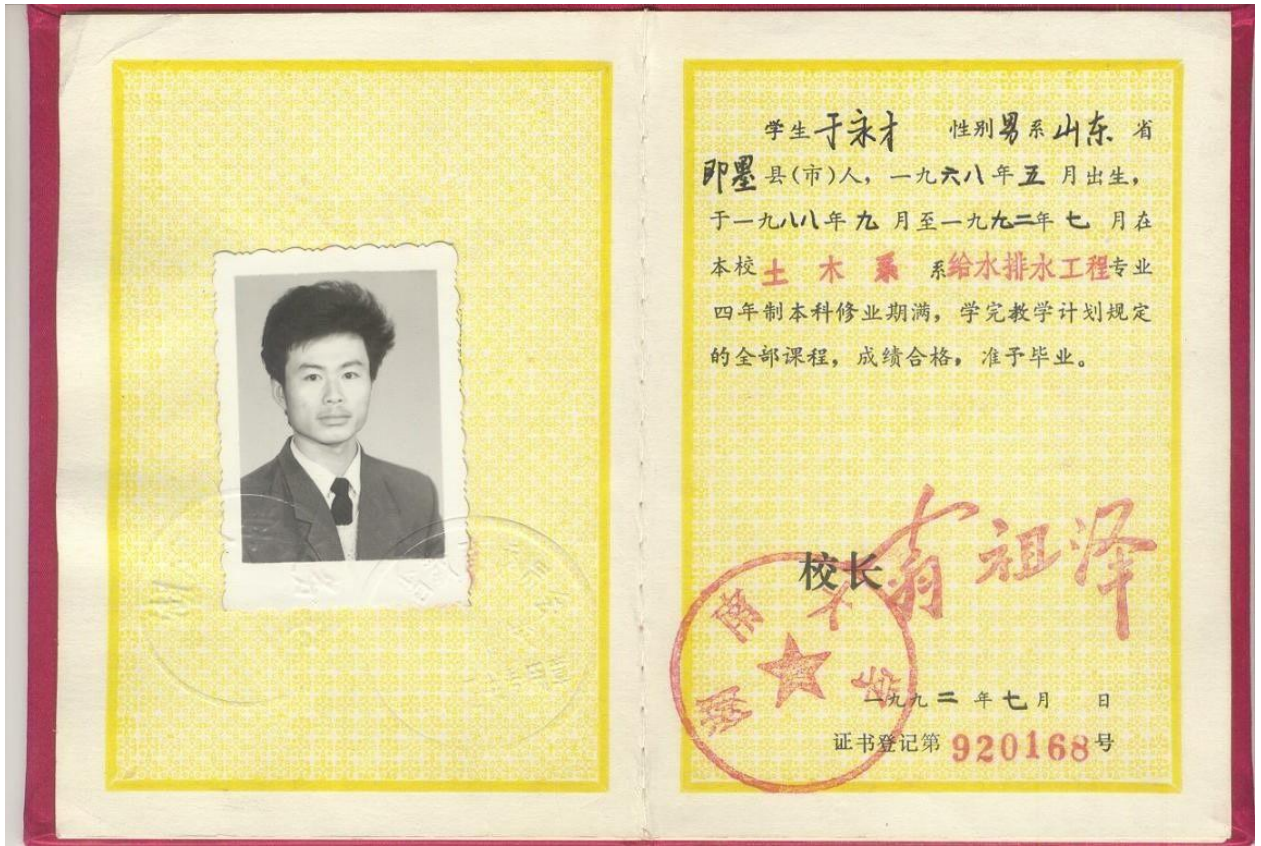 学生于永才 性别男系山东省
即墨县(市)人，一九六八年五月出生，
于一九八八年九月至一九九二年七月在
本校土木系系给水排水工程专业
四年制本科修业期满，学完教学计划规定
的全部课程，成绩合格，准予毕业。
校长 翁祖泽
湖南大学
一九九二年七月 日
证书登记第920168号